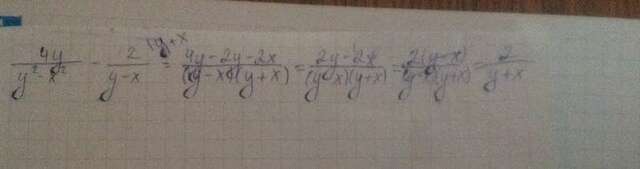 \frac{4y}{y^2-x^2} - \frac{2}{y-x}^{(y+x} = \frac{4y-2y-2x}{(y-x)(y+x)} = \frac{2y-2x}{(y-x)(y+x)} = \frac{2(y-x)}{(y-x)(y+x)} = \frac{2}{y+x}